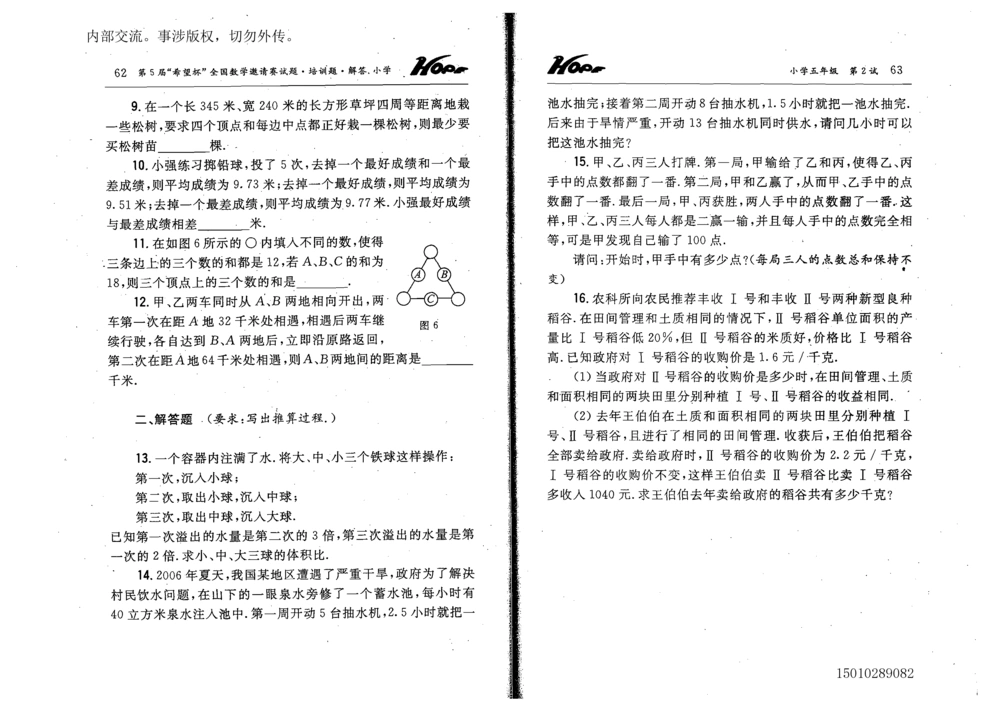 内部交流。事涉版权，切勿外传。
62 第5届“希望杯”全国数学邀请赛试题·培训题·解答.小学 Hope
9.在一个长345米、宽240米的长方形草坪四周等距离地栽
一些松树,要求四个顶点和每边中点都正好栽一棵松树,则最少要
买松树苗________棵.
10.小强练习掷铅球,投了5次,去掉一个最好成绩和一个最
差成绩,则平均成绩为9.73米;去掉一个最好成绩,则平均成绩为
9.51米;去掉一个最差成绩,则平均成绩为9.77米.小强最好成绩
与最差成绩相差________米.
11.在如图6所示的○内填入不同的数,使得
三条边上的三个数的和都是12,若A、B、C的和为
18,则三个顶点上的三个数的和是________.
A B
C
图6
12.甲、乙两车同时从A、B两地相向开出,两
车第一次在距A地32千米处相遇,相遇后两车继
续行驶,各自达到B、A两地后,立即沿原路返回,
第二次在距A地64千米处相遇,则A、B两地间的距离是________
千米.
二、解答题 (要求:写出推算过程.)
13.一个容器内注满了水.将大、中、小三个铁球这样操作:
第一次,沉入小球;
第二次,取出小球,沉入中球;
第三次,取出中球,沉入大球.
已知第一次溢出的水量是第二次的3倍,第三次溢出的水量是第
一次的2倍.求小、中、大三球的体积比.
14.2006年夏天,我国某地区遭遇了严重干旱,政府为了解决
村民饮水问题,在山下的一眼泉水旁修了一个蓄水池,每小时有
40立方米泉水注入池中.第一周开动5台抽水机,2.5小时就把一
Hope 小学五年级 第2试 63
池水抽完;接着第二周开动8台抽水机,1.5小时就把一池水抽完.
后来由于旱情严重,开动13台抽水机同时供水,请问几小时可以
把这池水抽完?
15.甲、乙、丙三人打牌.第一局,甲输给了乙和丙,使得乙、丙
手中的点数都翻了一番.第二局,甲和乙赢了,从而甲、乙手中的点
数翻了一番.最后一局,甲、丙获胜,两人手中的点数翻了一番.这
样,甲、乙、丙三人每人都是二赢一输,并且每人手中的点数完全相
等,可是甲发现自己输了100点.
请问:开始时,甲手中有多少点?(每局三人的点数总和保持不
变)
16.农科所向农民推荐丰收Ⅰ号和丰收Ⅱ号两种新型良种
稻谷.在田间管理和土质相同的情况下,Ⅱ号稻谷单位面积的产
量比Ⅰ号稻谷低20%,但Ⅱ号稻谷的米质好,价格比Ⅰ号稻谷
高.已知政府对Ⅰ号稻谷的收购价是1.6元/千克.
(1)当政府对Ⅱ号稻谷的收购价是多少时,在田间管理、土质
和面积相同的两块田里分别种植Ⅰ号、Ⅱ号稻谷的收益相同.
(2)去年王伯伯在土质和面积相同的两块田里分别种植Ⅰ
号、Ⅱ号稻谷,且进行了相同的田间管理.收获后,王伯伯把稻谷
全部卖给政府.卖给政府时,Ⅱ号稻谷的收购价为2.2元/千克,
Ⅰ号稻谷的收购价不变,这样王伯伯卖Ⅱ号稻谷比卖Ⅰ号稻谷
多收入1040元.求王伯伯去年卖给政府的稻谷共有多少千克?
15010289082